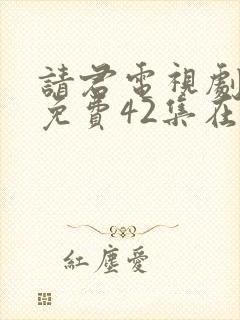 請君電視劇
免費42集在
紅塵愛